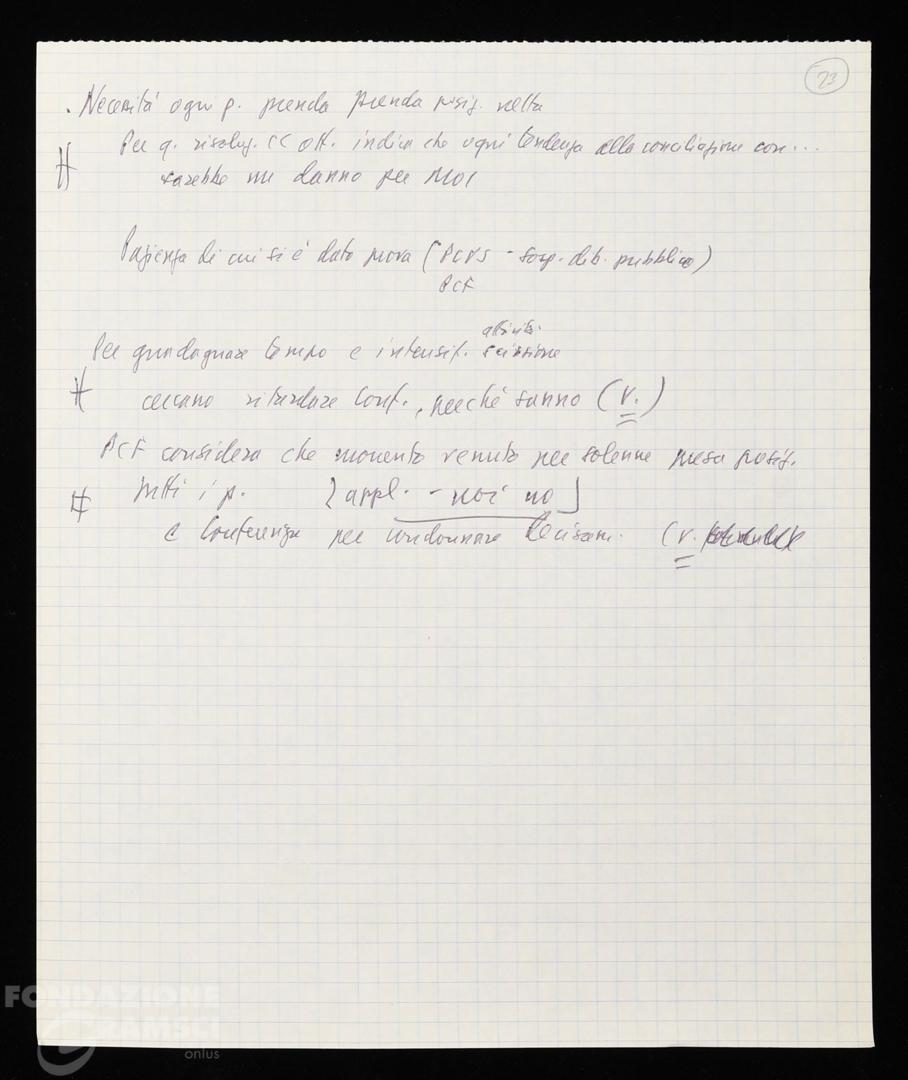 23
. Necessità ogni p. prenda prenda posiz. netta
Per q. risoluz. CC ott. indica che ogni tendenza alla conciliazione con...
sarebbe un danno per MOI
Pazienza di cui si è dato prova (PCUS - sosp. dib. pubblico)
PCF
attività
Per guadagnare tempo e intensif. scissione
cercano ritardare Conf., perché sanno (v.)
PCF considera che momento venuto per solenne presa posiz.
tutti i p. [appl. - noi no]
e Conferenza per condannare decisam. (v.
FONDAZIONE
GRAMSCI
onlus